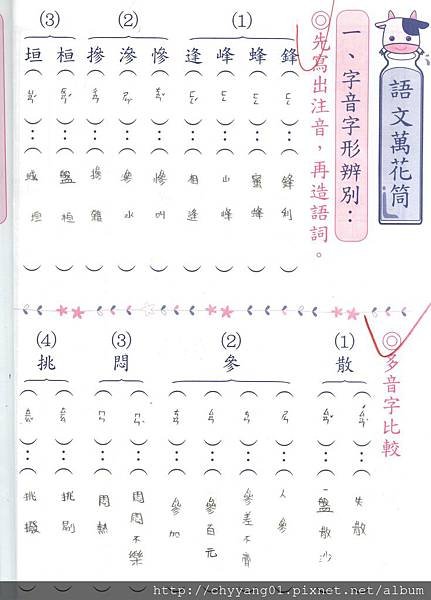 語文萬花筒
一、字音字形辨別：
◎先寫出注音，再造語詞。
(1)
鋒（ㄈㄥ）：（鋒利）
蜂（ㄈㄥ）：（蜜蜂）
峰（ㄈㄥ）：（山峰）
逢（ㄈㄥˊ）：（相逢）
(2)
慘（ㄘㄢˇ）：（慘叫）
滲（ㄕㄣˋ）：（滲水）
摻（ㄔㄢ）：（摻雜）
(3)
桓（ㄏㄨㄢˊ）：（盤桓）
垣（ㄩㄢˊ）：（城垣）
◎多音字比較
(1)
散
（ㄙㄢˋ）：（失散）
（ㄙㄢˇ）：（一盤散沙）
(2)
參
（ㄕㄣ）：（人參）
（ㄘㄣ）：（參差不齊）
（ㄙㄢ）：（參百元）
（ㄘㄢ）：（參加）
(3)
悶
（ㄇㄣˋ）：（悶悶不樂）
（ㄇㄣ）：（悶熱）
(4)
挑
（ㄊㄧㄠ）：（挑剔）
（ㄊㄧㄠˇ）：（挑撥）
http://chyyang01.pixnet.net/album